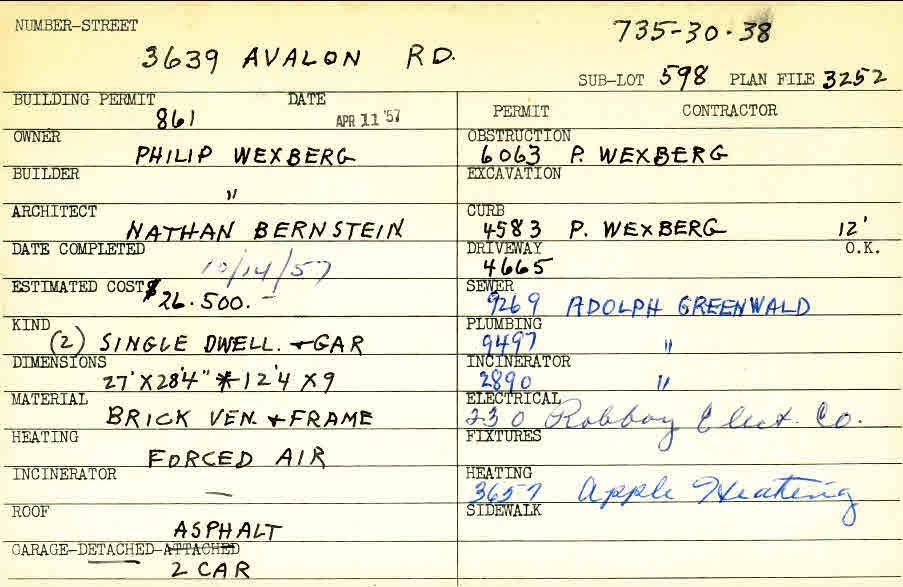 NUMBER-STREET
3639 AVALON RD.
735-30-38
SUB-LOT 598 PLAN FILE 3252
BUILDING PERMIT DATE
861 APR 11 '57
OWNER
PHILIP WEXBERG
BUILDER
"
ARCHITECT
NATHAN BERNSTEIN
DATE COMPLETED
10/14/57
ESTIMATED COST $
26.500.-
KIND
(2) SINGLE DWELL. + GAR
DIMENSIONS
27' X 28'4" * 12'4 X 9
MATERIAL
BRICK VEN. + FRAME
HEATING
FORCED AIR
INCINERATOR
—
ROOF
ASPHALT
GARAGE-DETACHED-ATTACHED
2 CAR
PERMIT CONTRACTOR
OBSTRUCTION
6063 P. WEXBERG
EXCAVATION
CURB
4583 P. WEXBERG 12'
DRIVEWAY O.K.
4665
SEWER
9269 ADOLPH GREENWALD
PLUMBING
9497 "
INCINERATOR
2890 "
ELECTRICAL
230 Robboy Elect. Co.
FIXTURES
HEATING
3657 Apple Heating
SIDEWALK